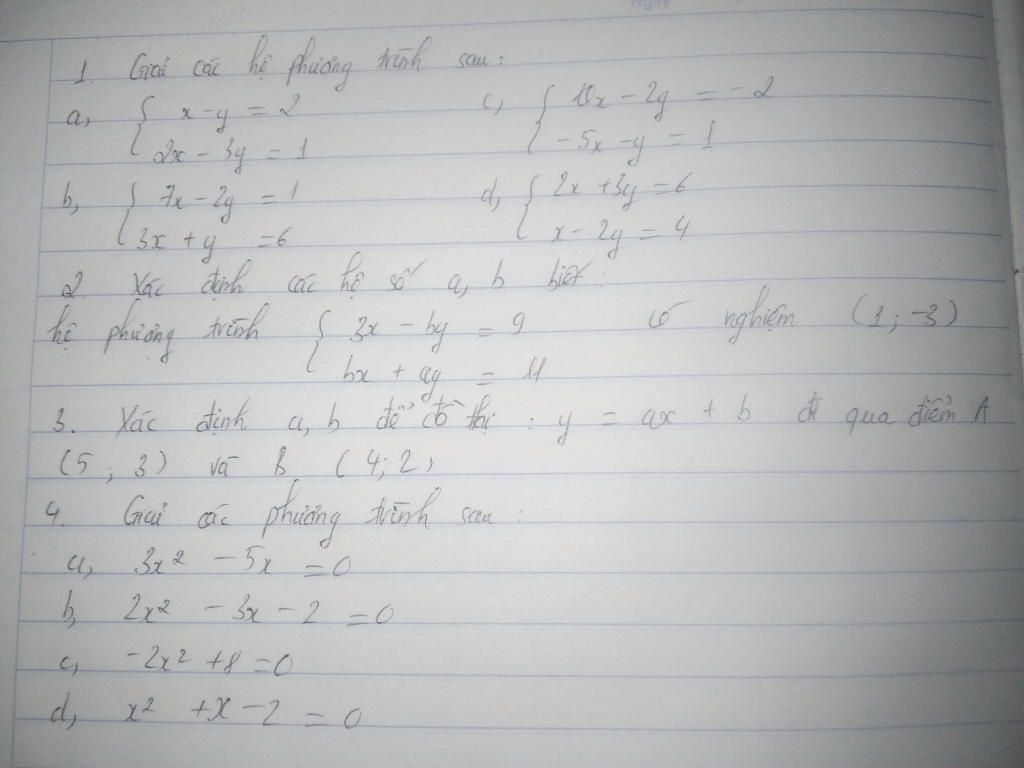 Ngày
1. Giải các hệ phương trình sau :
a, { x - y = 2 c, { 10x - 2y = - 2
2x - 3y = 1 - 5x - y = 1
b, { 7x - 2y = 1 d, { 2x + 3y = 6
3x + y = 6 x - 2y = 4
2. Xác định các hệ số a, b biết :
hệ phương trình { 3x - by = 9 có nghiệm (1 ; -3)
bx + ay = 11
3. Xác định a, b để đồ thị : y = ax + b đi qua điểm A
(5 ; 3) và B (4; 2)
4. Giải các phương trình sau :
a, 3x² - 5x = 0
b, 2x² - 3x - 2 = 0
c, -2x² + 8 = 0
d, x² + x - 2 = 0